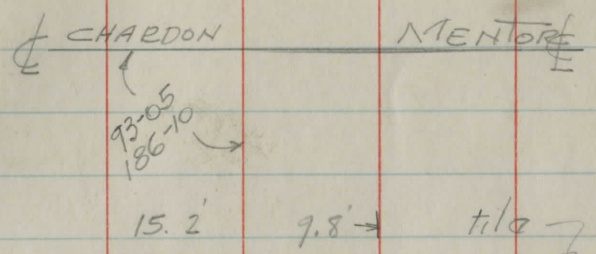 ℄ CHARDON MENTOR ℄
93-05
186-10
15.2' 9.8' → tile